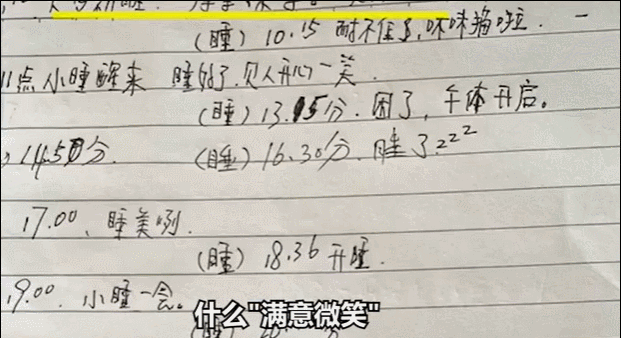 (睡) 10.15 耐不住了,咪咪猫啦.
11点小睡醒来 睡好了.贝人开心一美.
(睡) 13.15分.困了,午体开启。
14.50分. (睡) 16.30分.睡了zzz
17.00、睡美咧.
(睡) 18.36 开睡.
19.00. 小睡一会。
什么"满意微笑"